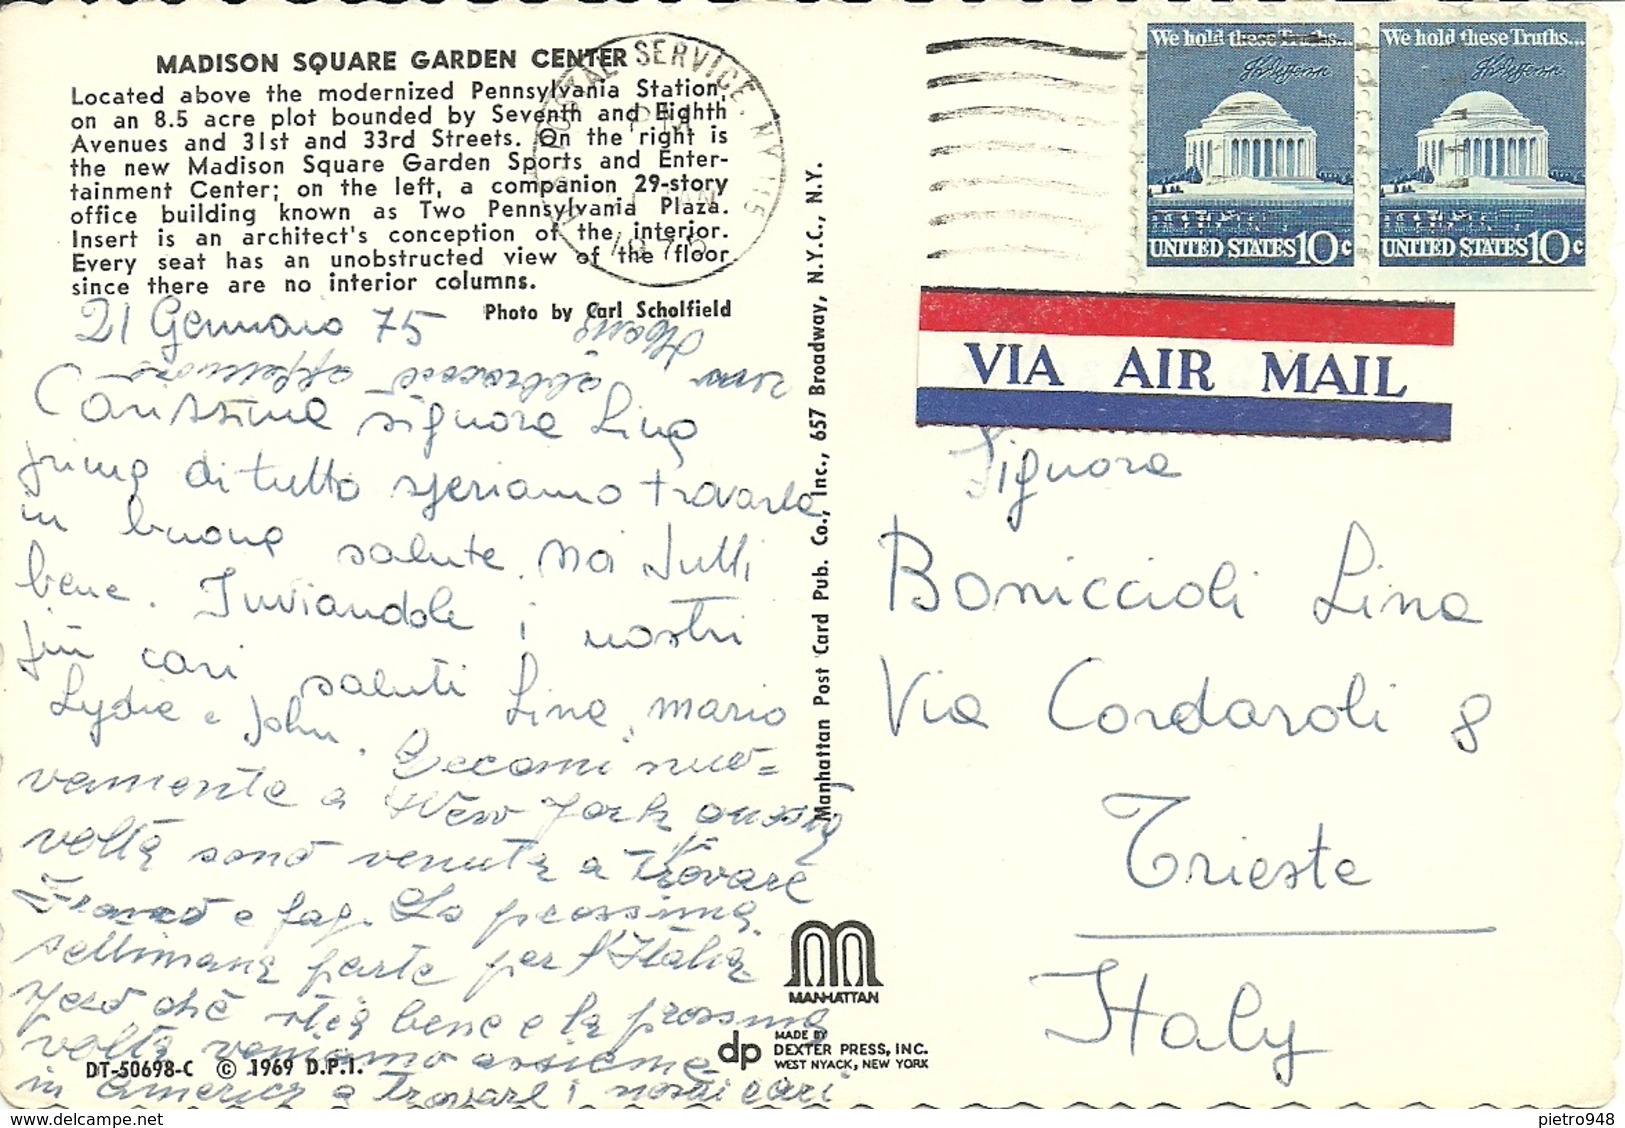 MADISON SQUARE GARDEN CENTER
Located above the modernized Pennsylvania Station,
on an 8.5 acre plot bounded by Seventh and Eighth
Avenues and 31st and 33rd Streets. On the right is
the new Madison Square Garden Sports and Enter-
tainment Center; on the left, a companion 29-story
office building known as Two Pennsylvania Plaza.
Insert is an architect's conception of the interior.
Every seat has an unobstructed view of the floor
since there are no interior columns.
Photo by Carl Scholfield
21 Gennaio 75
un abbraccio affettuoso
Carissima signora Lina
prima di tutto speriamo trovarla
in buona salute. Noi tutti
bene. Inviandole i nostri
più cari saluti Lina, mario
Lydia e John. Eccomi nuo=
vamente a New York questa
volta sono venuta a trovare
Franco e fag. La prossima
settimana parte per l'Italia
spero che stia bene e la prossima
volta veniamo assieme
in America a trovare i nostri cari
DT-50698-C © 1969 D.P.I.
Manhattan Post Card Pub. Co., Inc., 657 Broadway, N.Y.C., N.Y.
MANHATTAN
dp MADE BY
DEXTER PRESS, INC.
WEST NYACK, NEW YORK
POSTAL SERVICE, NY 115
We hold these Truths...
UNITED STATES 10c
We hold these Truths...
UNITED STATES 10c
VIA AIR MAIL
Signora
Boniccioli Lina
Via Cordaroli 8
Trieste
Italy
pietro948